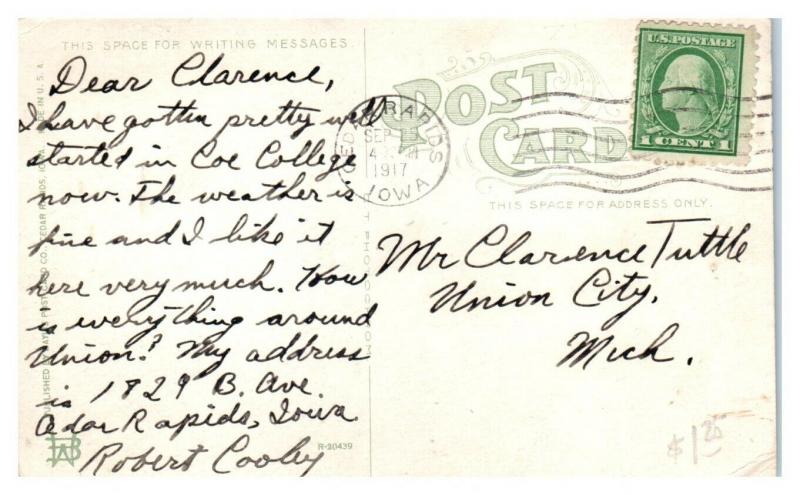 THIS SPACE FOR WRITING MESSAGES.
Dear Clarence,
I have gotten pretty well
started in Coe College
now. The weather is
fine and I like it
here very much. How
is everything around
Union? My address
is 1829 B. Ave.
Cedar Rapids, Iowa.
Robert Cooley
R-20439
POST
CARD
CEDAR RAPIDS
SEP
4
1917
IOWA
U.S. POSTAGE
1 CENT 1
THIS SPACE FOR ADDRESS ONLY.
Mr Clarence Tuttle
Union City,
Mich.
$1.25
IN U.S.A.
POST CARD CO. CEDAR RAPIDS, IOWA